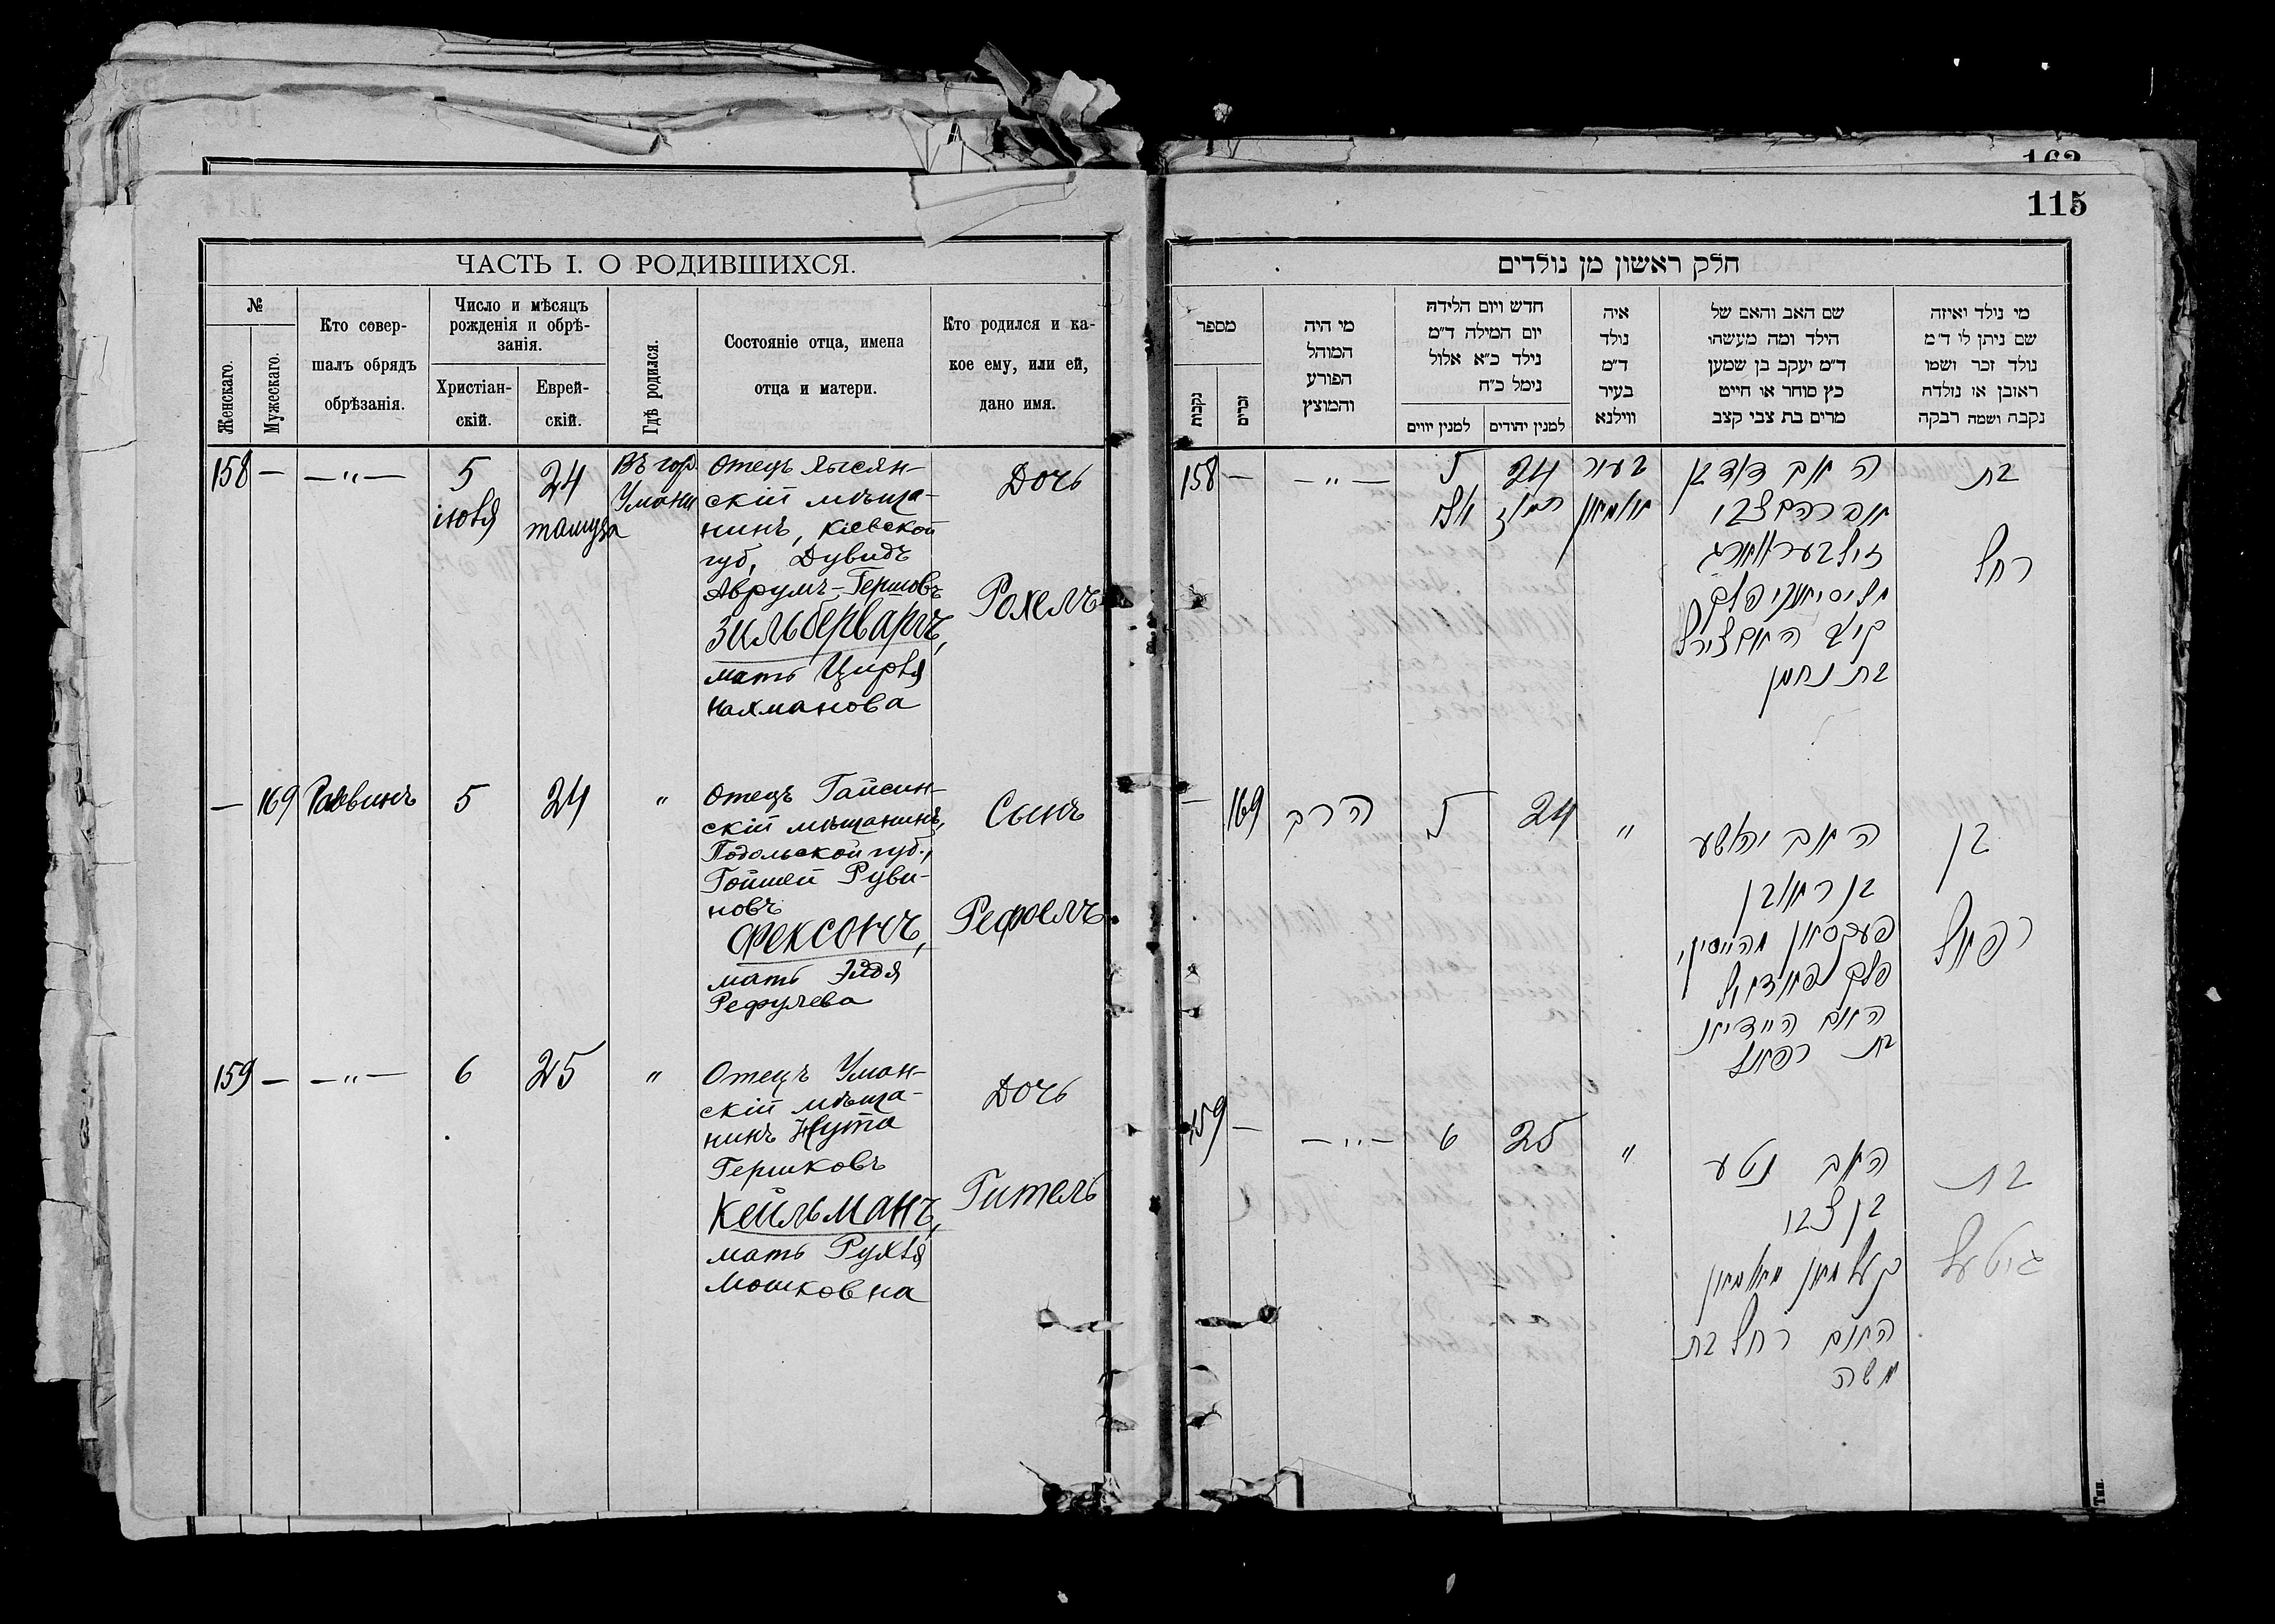 115
ЧАСТЬ I. О РОДИВШИХСЯ.
№
Женскаго.
Мужескаго.
Кто совер-
шалъ обрядъ
обрѣзанія.
Число и мѣсяцъ
рожденія и обрѣ-
занія.
Христіан-
скій.
Еврей-
скій.
Гдѣ родился.
Состояніе отца, имена
отца и матери.
Кто родился и ка-
кое ему, или ей,
дано имя.
158 — — " —
5
іюля
24
тамуза
Въ гор.
Умани
Отецъ Лысян-
скій мѣща-
нинъ, Кіевской
губ, Дувидъ
Аврумъ-Гершовъ
Зильбервартъ,
мать Цирля
Нахманова
Дочь
Рохелъ
— 169 Раввинъ 5 24 "
Отецъ Гайсин-
скій мѣщанинъ,
Подольской губ.,
Гойшей Руви-
новъ
Фексонъ,
мать Эйдя
Рефулева
Сынъ
Рефоелъ
159 — — " — 6 25 "
Отецъ Уман-
скій мѣща-
нинъ Нута
Гершковъ
Кейльманъ,
мать Рухля
Мошковна
Дочь
Гитель
חלק ראשון מן נולדים
מי נולד ואיזה
שם ניתן לו ד"מ
נולד זכר ושמו
ראובן או נולדה
נקבה ושמה רבקה
שם האב והאם של
הילד ומה מעשהו
ד"מ יעקב בן שמען
כץ סוחר או חייט
מרים בת צבי קצב
איה
נולד
ד"מ
בעיר
ווילנא
חדש ויום הלידה
יום המילה ד"מ
נולד כ"א אלול
נימל כ"ח
למנין יהודים
למנין יווים
מי היה
המוהל
הפורע
והמוצץ
מספר
זכרים
נקבות
בת
רחל
האב דוד בן
אברהם צבי
זילבערווארג
פלך
קיוב האם צירל
בת נחמן
בעיר
אומאן
24
תמוז
5
יולי
— " —
— 158
בן
רפאל
האב יהושע
בן ראובן
פעקסאן מהייסין,
פלך פאדאל
האם היידיא
בת רפאל
" 24 5 הרב 169 —
בת
גיטעל
האב נטע
בן צבי
קעלמאן מאומאן
האם רחל בת
משה
" 25 6 — " — — 159